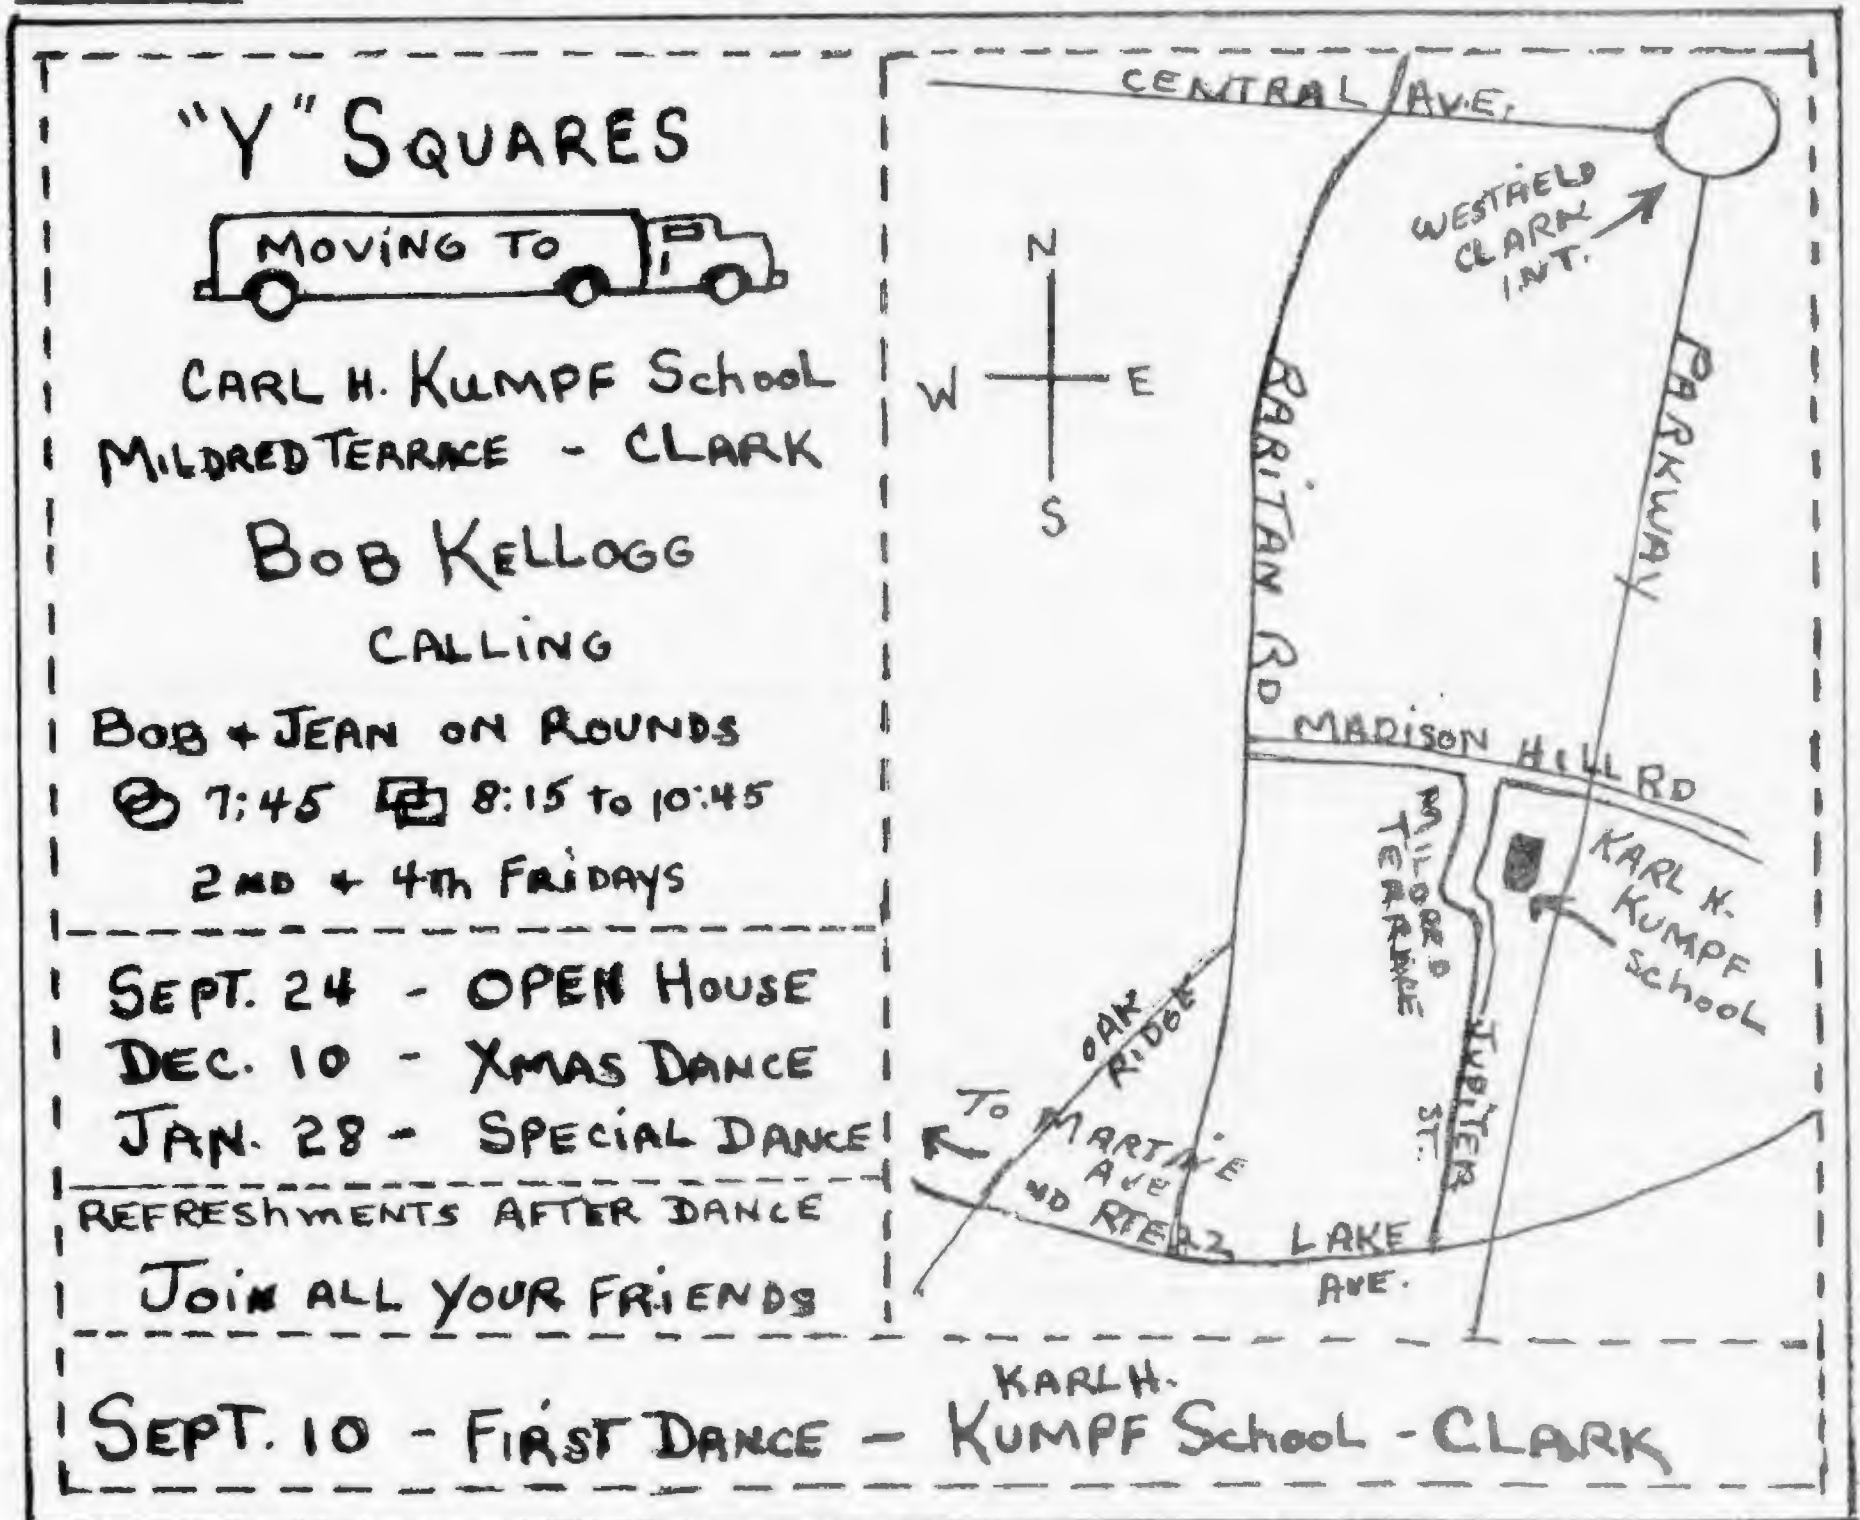 "Y" SQUARES
MOVING TO
CARL H. KUMPF SCHOOL
MILDRED TERRACE - CLARK
BOB KELLOGG
CALLING
BOB + JEAN ON ROUNDS
7:45 8:15 to 10:45
2ND + 4TH FRIDAYS
SEPT. 24 - OPEN HOUSE
DEC. 10 - XMAS DANCE
JAN. 28 - SPECIAL DANCE
REFRESHMENTS AFTER DANCE
JOIN ALL YOUR FRIENDS
CENTRAL AVE.
WESTFIELD
CLARK
INT.
N
W E
S
RARITAN RD
PARKWAY
MADISON HILL RD
MILDRED
TERRACE
KARL H.
KUMPF
SCHOOL
OAK
RIDGE
JUPITER
ST.
TO
MARTINE
AVE
RTE 22
LAKE
AVE.
KARL H.
SEPT. 10 - FIRST DANCE - KUMPF SCHOOL - CLARK